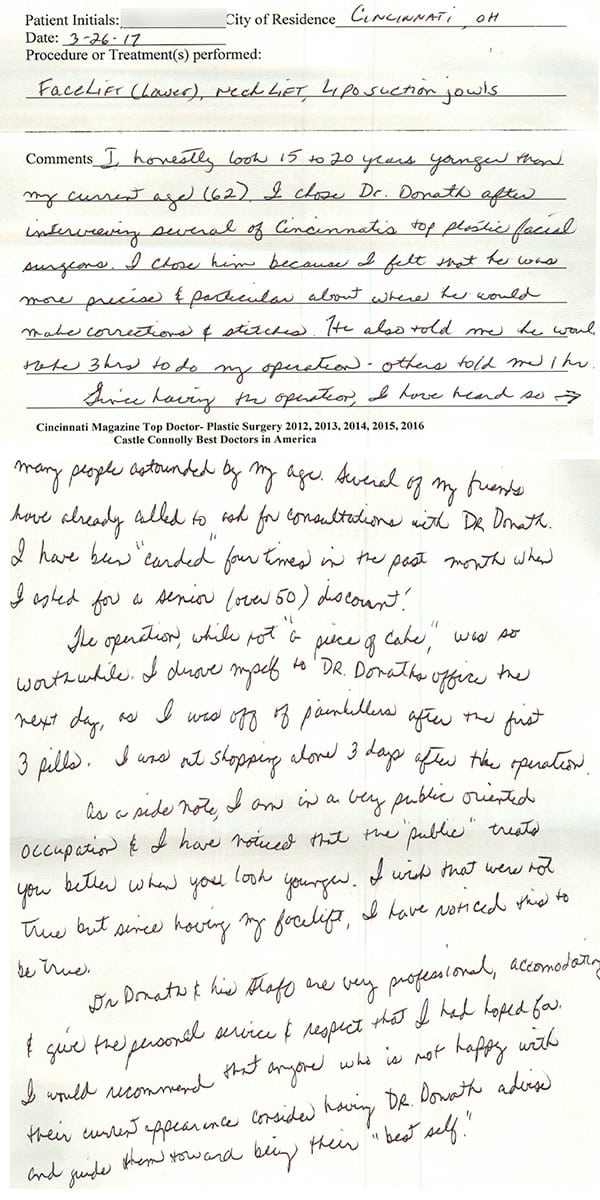 Patient Initials: City of Residence Cincinnati, OH
Date: 3-26-17
Procedure or Treatment(s) performed:
Facelift (Lower), Neck Lift, Liposuction jowls
Comments I honestly look 15 to 20 years younger than
my current age (62). I chose Dr. Donath after
interviewing several of Cincinnati's top plastic facial
surgeons. I chose him because I felt that he was
more precise & particular about where he would
make corrections & stitches. He also told me he woul
take 3hrs to do my operation - others told me 1 hr.
Since having the operation, I have heard so →
Cincinnati Magazine Top Doctor- Plastic Surgery 2012, 2013, 2014, 2015, 2016
Castle Connolly Best Doctors in America
many people astounded by my age. Several of my friends
have already called to ask for consultations with DR Donath.
I have been "carded" four times in the past month when
I asked for a senior (over 50) discount!
The operation, while not "a piece of cake," was so
worthwhile. I drove myself to DR. Donaths office the
next day, as I was off of painkillers after the first
3 pills. I was out shopping alone 3 days after the operation.
As a side note, I am in a very public oriented
occupation & I have noticed that the "public" treats
you better when you look younger. I wish that were not
true but since having my facelift, I have noticed this to
be true.
Dr Donath & his staff are very professional, accomodating
& give the personal service & respect that I had hoped for.
I would recommend that anyone who is not happy with
their current appearance consider having DR. Donath advise
and guide them toward being their "best self."